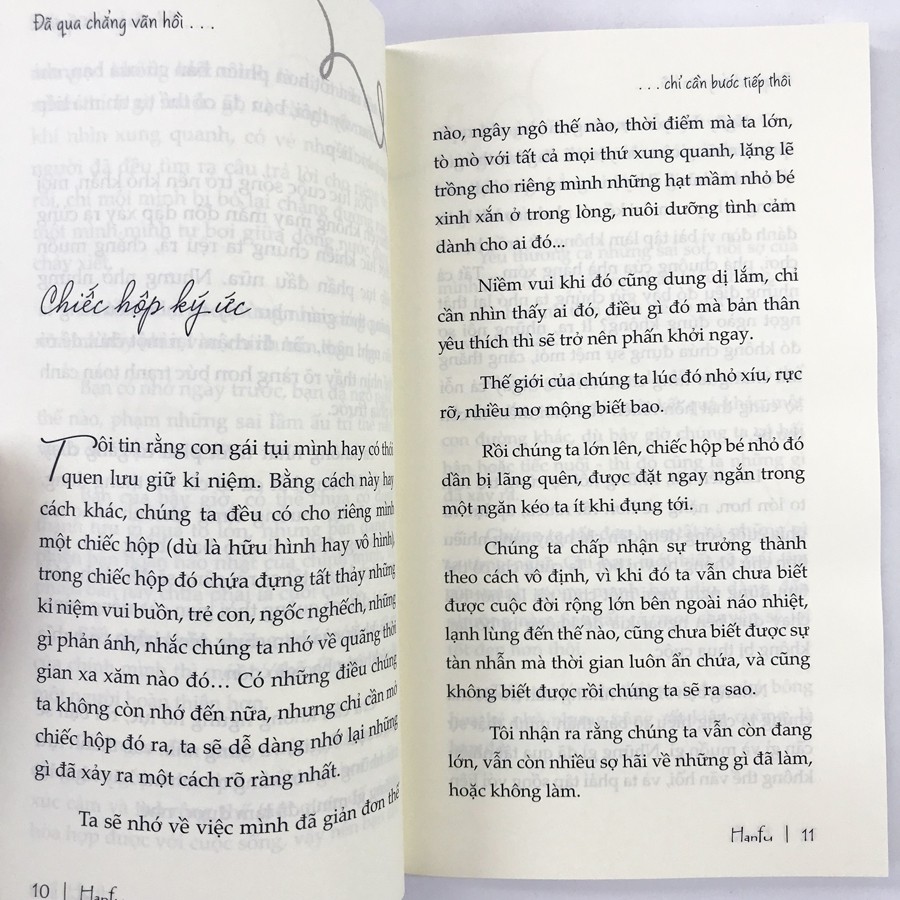 Đã qua chẳng vãn hồi . . .
Chiếc hộp ký ức
Tôi tin rằng con gái tụi mình hay có thói
quen lưu giữ kỉ niệm. Bằng cách này hay
cách khác, chúng ta đều có cho riêng mình
một chiếc hộp (dù là hữu hình hay vô hình),
trong chiếc hộp đó chứa đựng tất thảy những
kỉ niệm vui buồn, trẻ con, ngốc nghếch, những
gì phản ánh, nhắc chúng ta nhớ về quãng thời
gian xa xăm nào đó... Có những điều chúng
ta không còn nhớ đến nữa, nhưng chỉ cần mở
chiếc hộp đó ra, ta sẽ dễ dàng nhớ lại những
gì đã xảy ra một cách rõ ràng nhất.
Ta sẽ nhớ về việc mình đã giản đơn thế
10 | Hanf
. . . chỉ cần bước tiếp thôi
nào, ngây ngô thế nào, thời điểm mà ta lớn,
tò mò với tất cả mọi thứ xung quanh, lặng lẽ
trồng cho riêng mình những hạt mầm nhỏ bé
xinh xắn ở trong lòng, nuôi dưỡng tình cảm
dành cho ai đó...
Niềm vui khi đó cũng dung dị lắm, chỉ
cần nhìn thấy ai đó, điều gì đó mà bản thân
yêu thích thì sẽ trở nên phấn khởi ngay.
Thế giới của chúng ta lúc đó nhỏ xíu, rực
rỡ, nhiều mơ mộng biết bao.
Rồi chúng ta lớn lên, chiếc hộp bé nhỏ đó
dần bị lãng quên, được đặt ngay ngắn trong
một ngăn kéo ta ít khi đụng tới.
Chúng ta chấp nhận sự trưởng thành
theo cách vô định, vì khi đó ta vẫn chưa biết
được cuộc đời rộng lớn bên ngoài náo nhiệt,
lạnh lùng đến thế nào, cũng chưa biết được sự
tàn nhẫn mà thời gian luôn ẩn chứa, và cũng
không biết được rồi chúng ta sẽ ra sao.
Tôi nhận ra rằng chúng ta vẫn còn đang
lớn, vẫn còn nhiều sợ hãi về những gì đã làm,
hoặc không làm.
Hanfu | 11